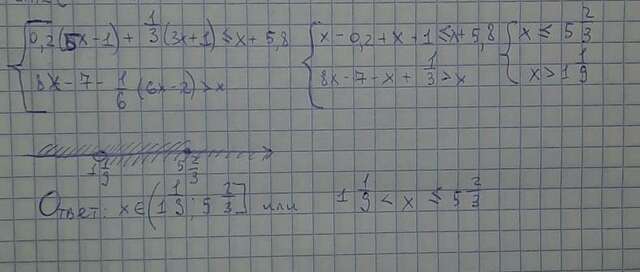 0,2(5x-1) + 1/3(3x+1) ≤ x + 5,8
8x - 7 - 1/6(6x-2) > x
x - 0,2 + x + 1 ≤ x + 5,8
8x - 7 - x + 1/3 > x
x ≤ 5 2/3
x > 1 1/9
1 1/9 5 2/3
Ответ: x ∈ (1 1/9; 5 2/3] или 1 1/9 < x ≤ 5 2/3